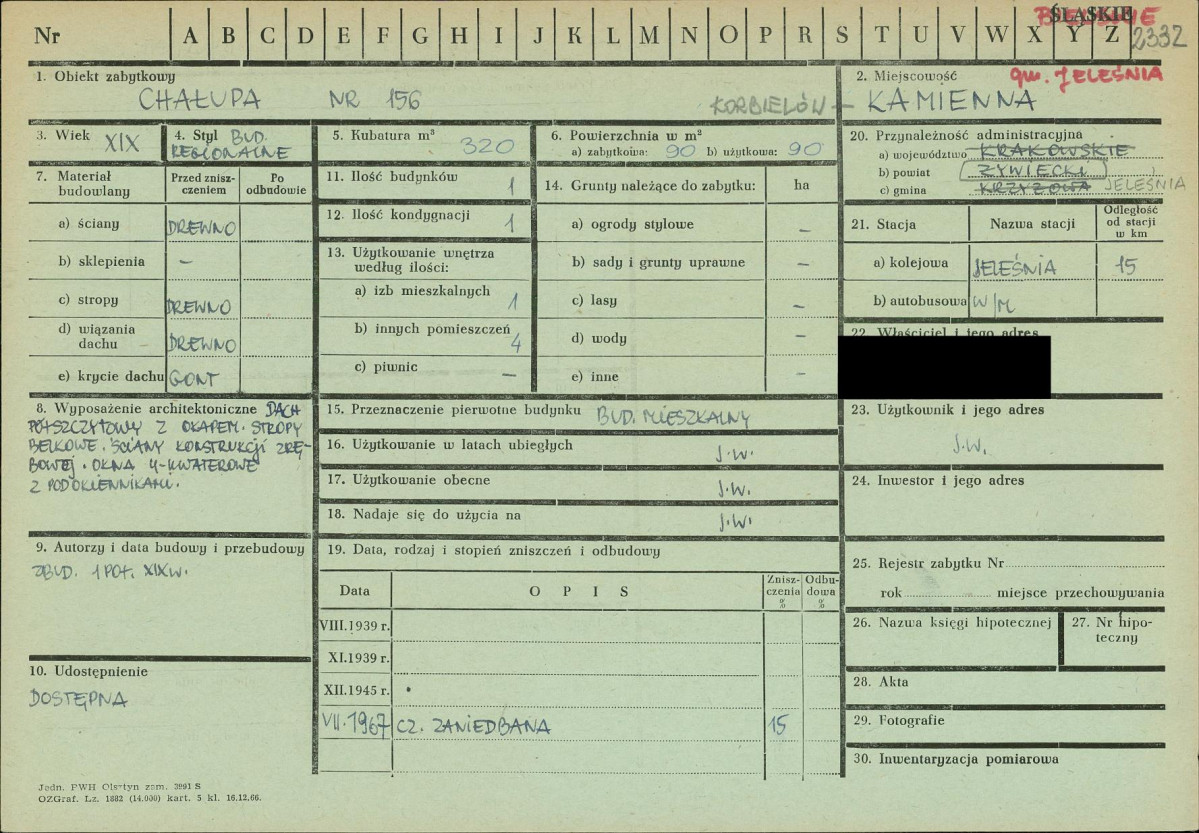 Nr A B C D E F G H I J K L M N O P R S T U V W X Y Z
ŚLĄSKIE
2332
1. Obiekt zabytkowy
CHAŁUPA NR 156
2. Miejscowość
gm. JELEŚNIA
KORBIELÓW – KAMIENNA
3. Wiek XIX
4. Styl BUD. REGIONALNE
5. Kubatura m³ 320
6. Powierzchnia w m²
a) zabytkowa: 90 b) użytkowa: 90
20. Przynależność administracyjna
a) województwo KRAKOWSKIE
b) powiat ŻYWIECKI
c) gmina KRZYŻOWA JELEŚNIA
7. Materiał budowlany
Przed zniszczeniem
Po odbudowie
a) ściany DREWNO
b) sklepienia –
c) stropy DREWNO
d) wiązania dachu – DREWNO
e) krycie dachu GONT
11. Ilość budynków 1
12. Ilość kondygnacji 1
13. Użytkowanie wnętrza według ilości:
a) izb mieszkalnych 1
b) innych pomieszczeń 4
c) piwnic –
14. Grunty należące do zabytku: ha
a) ogrody stylowe –
b) sady i grunty uprawne –
c) lasy –
d) wody –
e) inne –
21. Stacja
Nazwa stacji
Odległość od stacji w km
a) kolejowa JELEŚNIA 15
b) autobusowa W/M
22. Właściciel i jego adres
8. Wyposażenie architektoniczne DACH
PÓŁSZCZYTOWY Z OKAPEM. STROPY
BELKOWE. ŚCIANY KONSTRUKCJI ZRĘ-
BOWEJ. OKNA 4-KWATEROWE
Z PODOKIENNIKAMI.
15. Przeznaczenie pierwotne budynku BUD. MIESZKALNY
16. Użytkowanie w latach ubiegłych J.W.
17. Użytkowanie obecne J.W.
18. Nadaje się do użycia na J.W.
23. Użytkownik i jego adres
J.W.
24. Inwestor i jego adres
9. Autorzy i data budowy i przebudowy
ZBUD. 1 POŁ. XIX W.
19. Data, rodzaj i stopień zniszczeń i odbudowy
Data OPIS Zniszczenia % Odbudowa %
VIII.1939 r.
XI.1939 r.
XII.1945 r.
VII.1967 CZ. ZANIEDBANA 15
25. Rejestr zabytku Nr
rok miejsce przechowywania
26. Nazwa księgi hipotecznej
27. Nr hipoteczny
28. Akta
29. Fotografie
30. Inwentaryzacja pomiarowa
10. Udostępnienie
DOSTĘPNA
Jedn. PWH Olsztyn zam. 3991 S
OZGraf. Lz. 1882 (14.000) kart. 5 kl. 16.12.66.